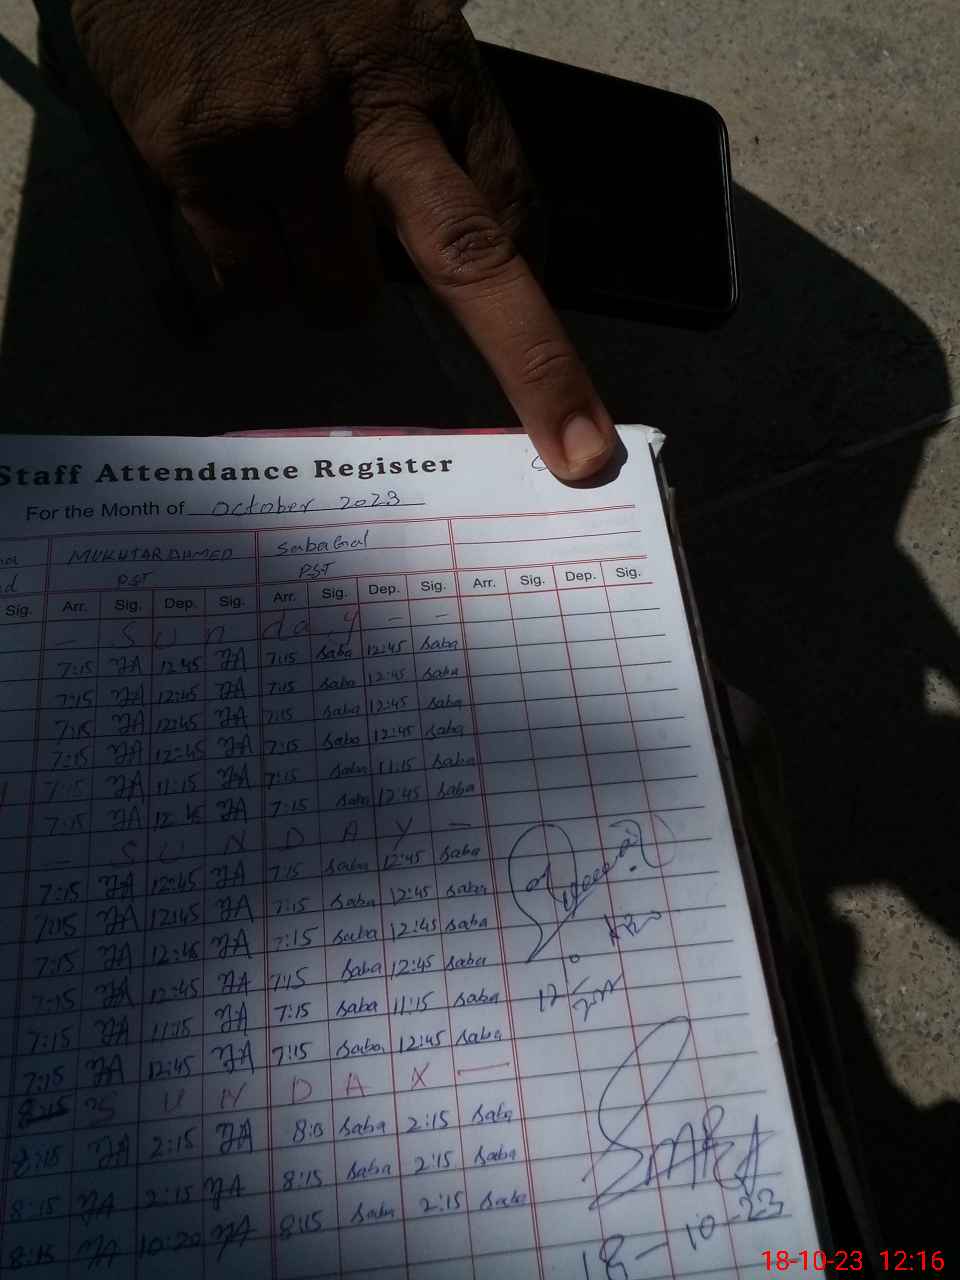 Staff Attendance Register
For the Month of October 2023
MUKHTAR AHMED Saba Gul
d PST PST
Sig. Arr. Sig. Dep. Sig. Arr. Sig. Dep. Sig. Arr. Sig. Dep. Sig.
- S u n d a y - -
7:15 YA 12:45 YA 7:15 Saba 12:45 Saba
7:15 YA 12:45 YA 7:15 Saba 12:45 Saba
7:15 YA 12:45 YA 7:15 Saba 12:45 Saba
7:15 YA 12:45 YA 7:15 Saba 12:45 Saba
7:15 YA 11:15 YA 7:15 Saba 11:15 Saba
7:15 YA 12:45 YA 7:15 Saba 12:45 Saba
- S U N D A Y -
7:15 YA 12:45 YA 7:15 Saba 12:45 Saba
7:15 YA 12:45 YA 7:15 Saba 12:45 Saba
7:15 YA 12:45 YA 7:15 Saba 12:45 Saba
7:15 YA 12:45 YA 7:15 Saba 12:45 Saba
7:15 YA 11:15 YA 7:15 Saba 11:15 Saba
7:15 YA 12:45 YA 7:15 Saba 12:45 Saba
S U N D A Y -
8:15 YA 2:15 YA 8:15 Saba 2:15 Saba
8:15 YA 2:15 YA 8:15 Saba 2:15 Saba
8:15 YA 10:20 YA 8:15 Saba 2:15 Saba
18-10-23
18-10-23 12:16